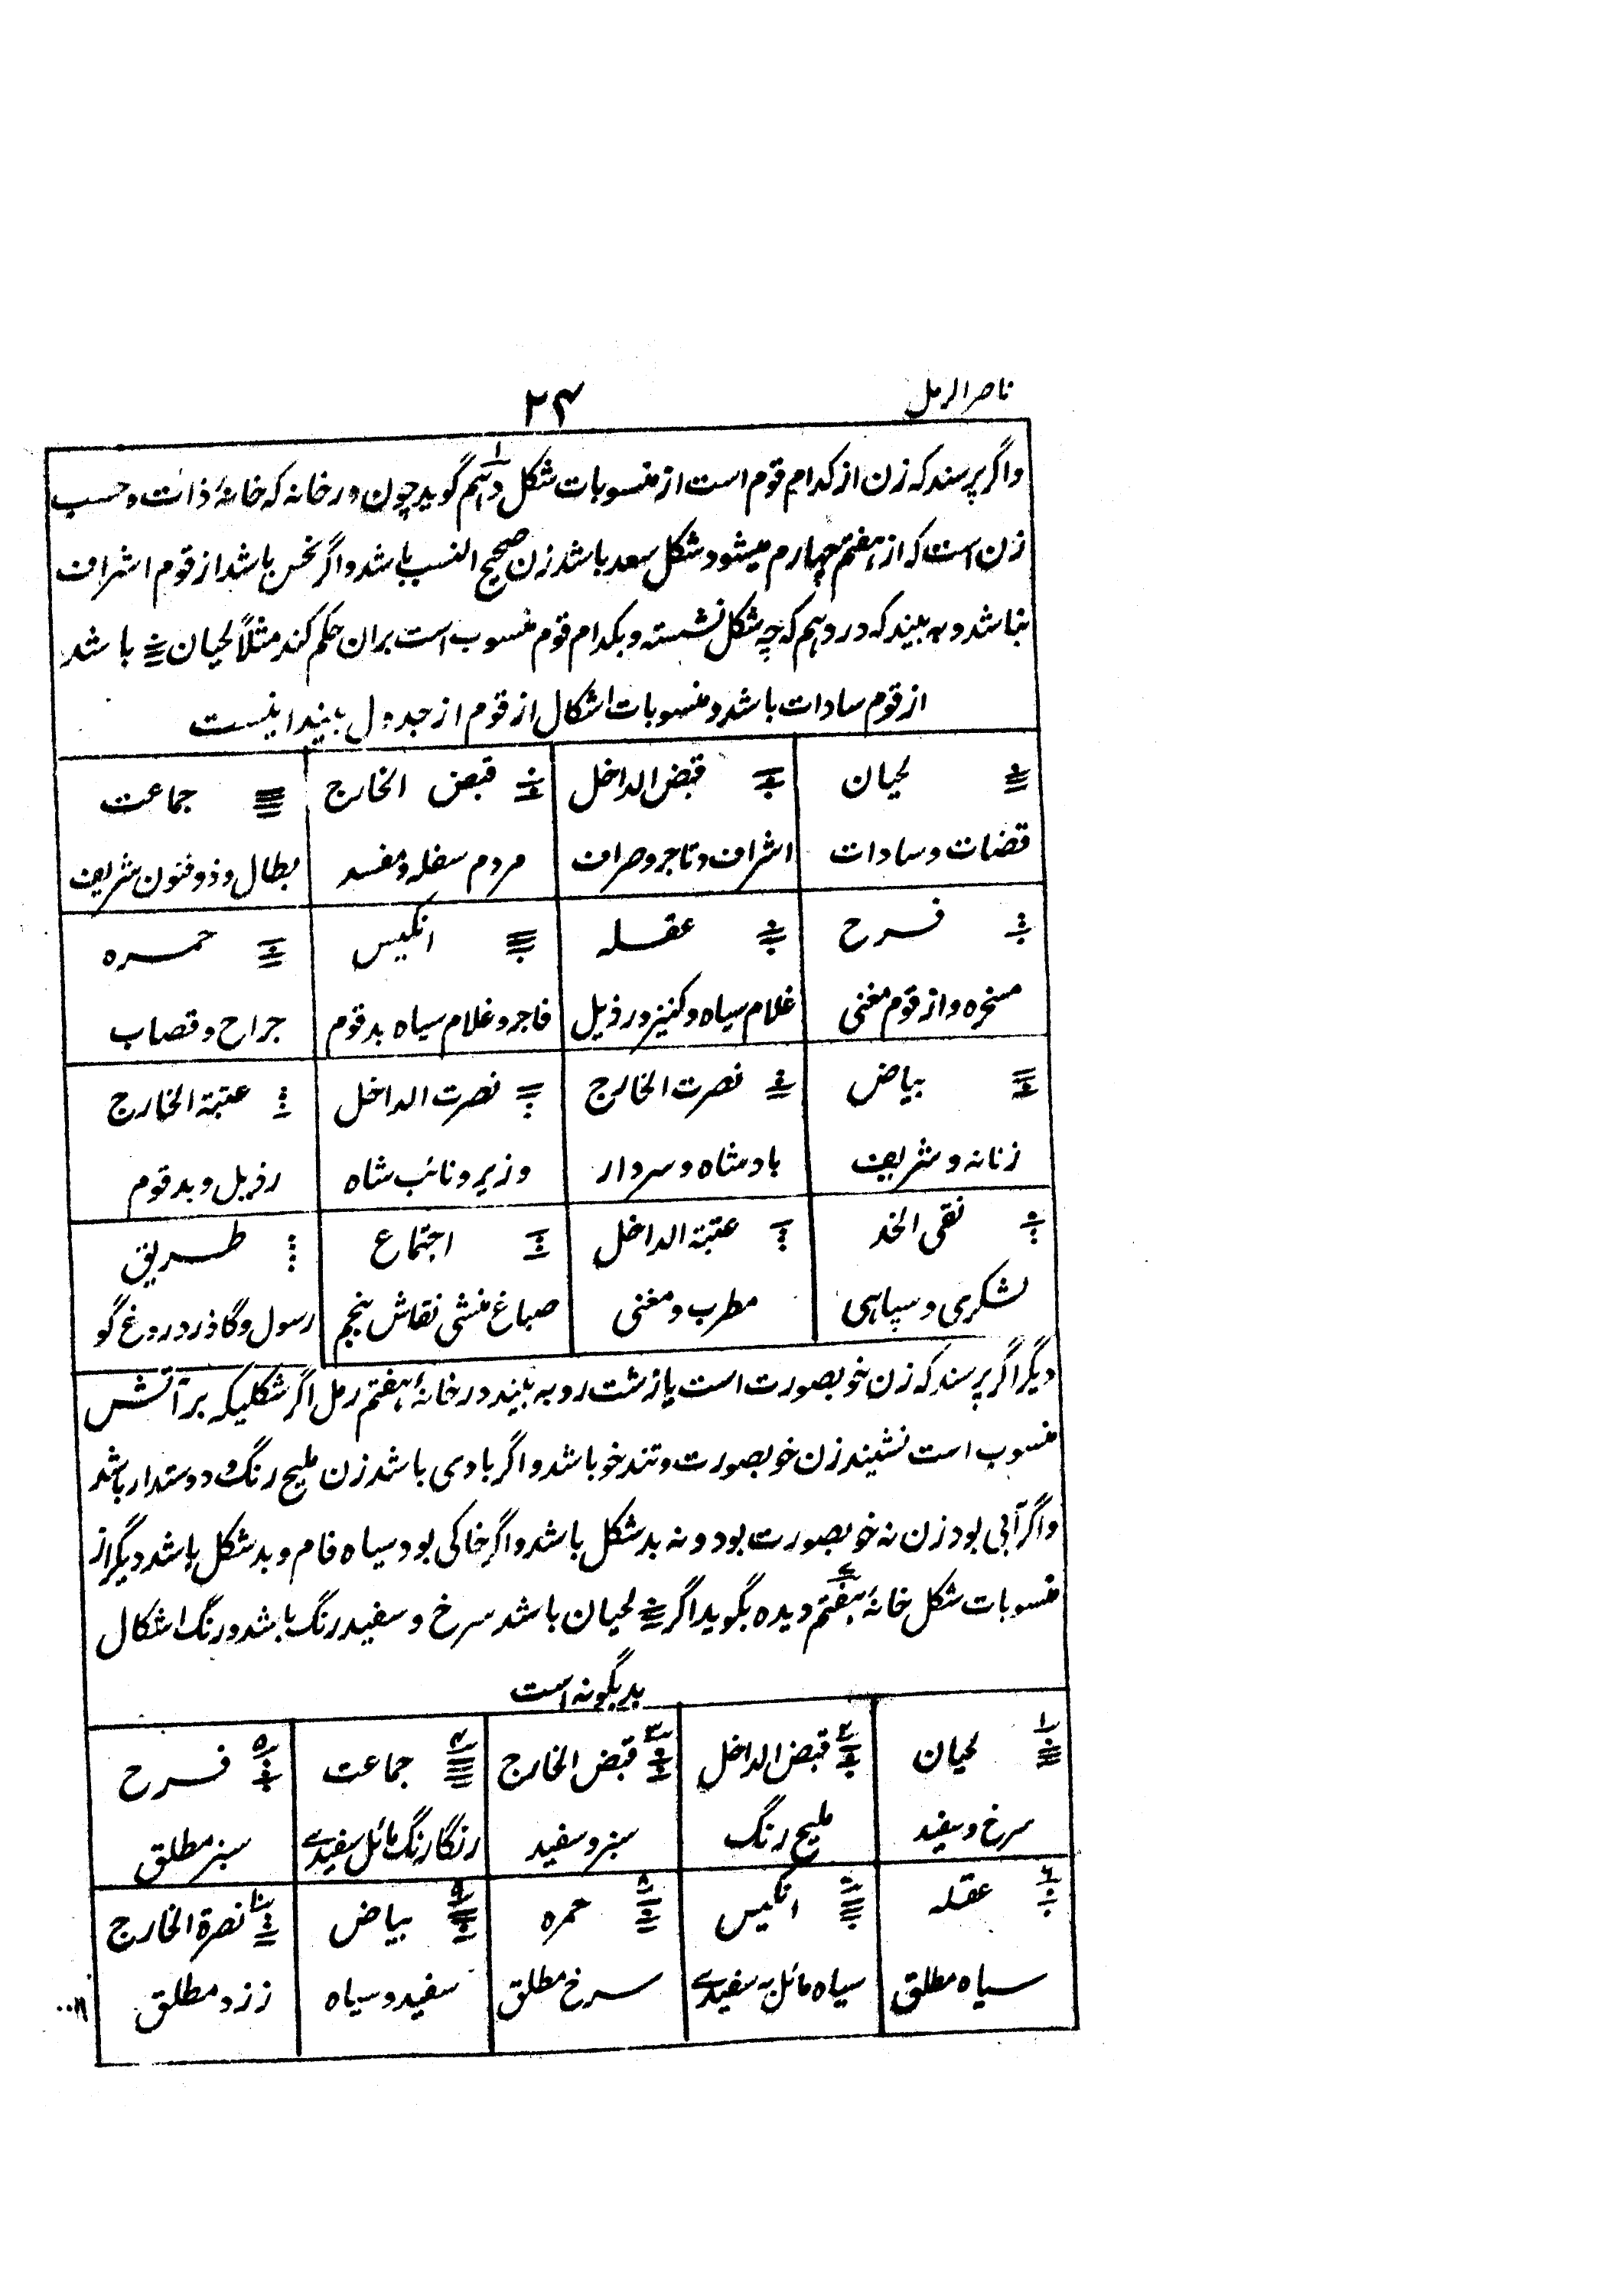 ناصر الرمل
۲۴
واگر پرسند که زن از کدام قوم است از منسوبات شکل دہم گوید چون در خانه که خانۂ ذات و حسب
زن است که از ہفتم چہارم میشود شکل سعد باشد زن صحیح النسب باشد واگر نحس باشد از قوم اشراف
نباشد و بہ بیند که در دہم که چه شکل نشسته و بکدام قوم منسوب است بران حکم کند مثلاً لحیان باشد
از قوم سادات باشد و منسوبات اشکال از قوم از جدول بیند اینست
لحیان قبض الداخل قبض الخارج جماعت
قضات و سادات اشراف و تاجر و صراف مردم سفله و مفسد بطال و ذو فنون شریف
فرح عقله انکیس حمره
مسخره و از قوم مغنی غلام سیاه و کنیز و رذیل فاجر و غلام سیاه بد قوم جراح و قصاب
بیاض نصرت الخارج نصرت الداخل عتبة الخارج
زنانه و شریف بادشاه و سردار وزیر و نائب شاه رذیل و بد قوم
نقی الخد عتبة الداخل اجتماع طریق
لشکری و سپاہی مطرب و مغنی صباغ منشی نقاش منجم رسول و گاذر دروغ گو
دیگر اگر پرسند که زن خوبصورت است یا زشت رو به بیند در خانۂ ہفتم رمل اگر شکلیکه بر آتش
منسوب است نشیند زن خوبصورت و تند خو باشد واگر بادی باشد زن ملیح رنگ و دوستدار باشد
واگر آبی بود زن نه خوبصورت بود و نه بد شکل باشد واگر خاکی بود سیاه فام و بد شکل باشد دیگر از
منسوبات شکل خانۂ ہفتم دیده بگوید اگر لحیان باشد سرخ و سفید رنگ باشد و رنگ اشکال
بدیگونه است
۱ لحیان ۲ قبض الداخل ۳ قبض الخارج ۴ جماعت ۵ فرح
سرخ و سفید ملیح رنگ سبز و سفید رنگارنگ مائل سفیدے سبز مطلق
۶ عقله ۷ انکیس ۸ حمره ۹ بیاض ۱۰ نصرة الخارج
سیاه مطلق سیاه مائل بہ سفیدے سرخ مطلق سفید و سیاه زرد مطلق